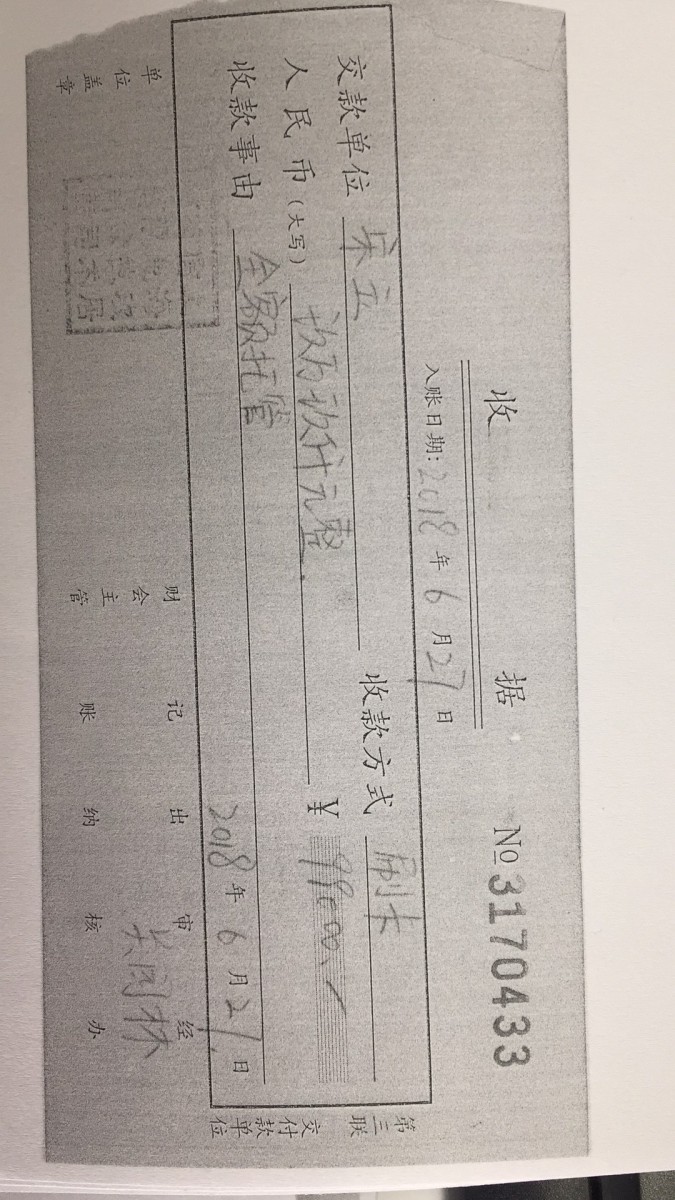 收 据 №3170433
入账日期:2018年6月27日
交款单位 宋立 收款方式 刷卡
人民币(大写) 玖万玖仟元整. ¥ 99000.
收款事由 全额托管
2018年6月27日
第三联 交付款单位
单位盖章 财会主管 记账 出纳 审核 经办